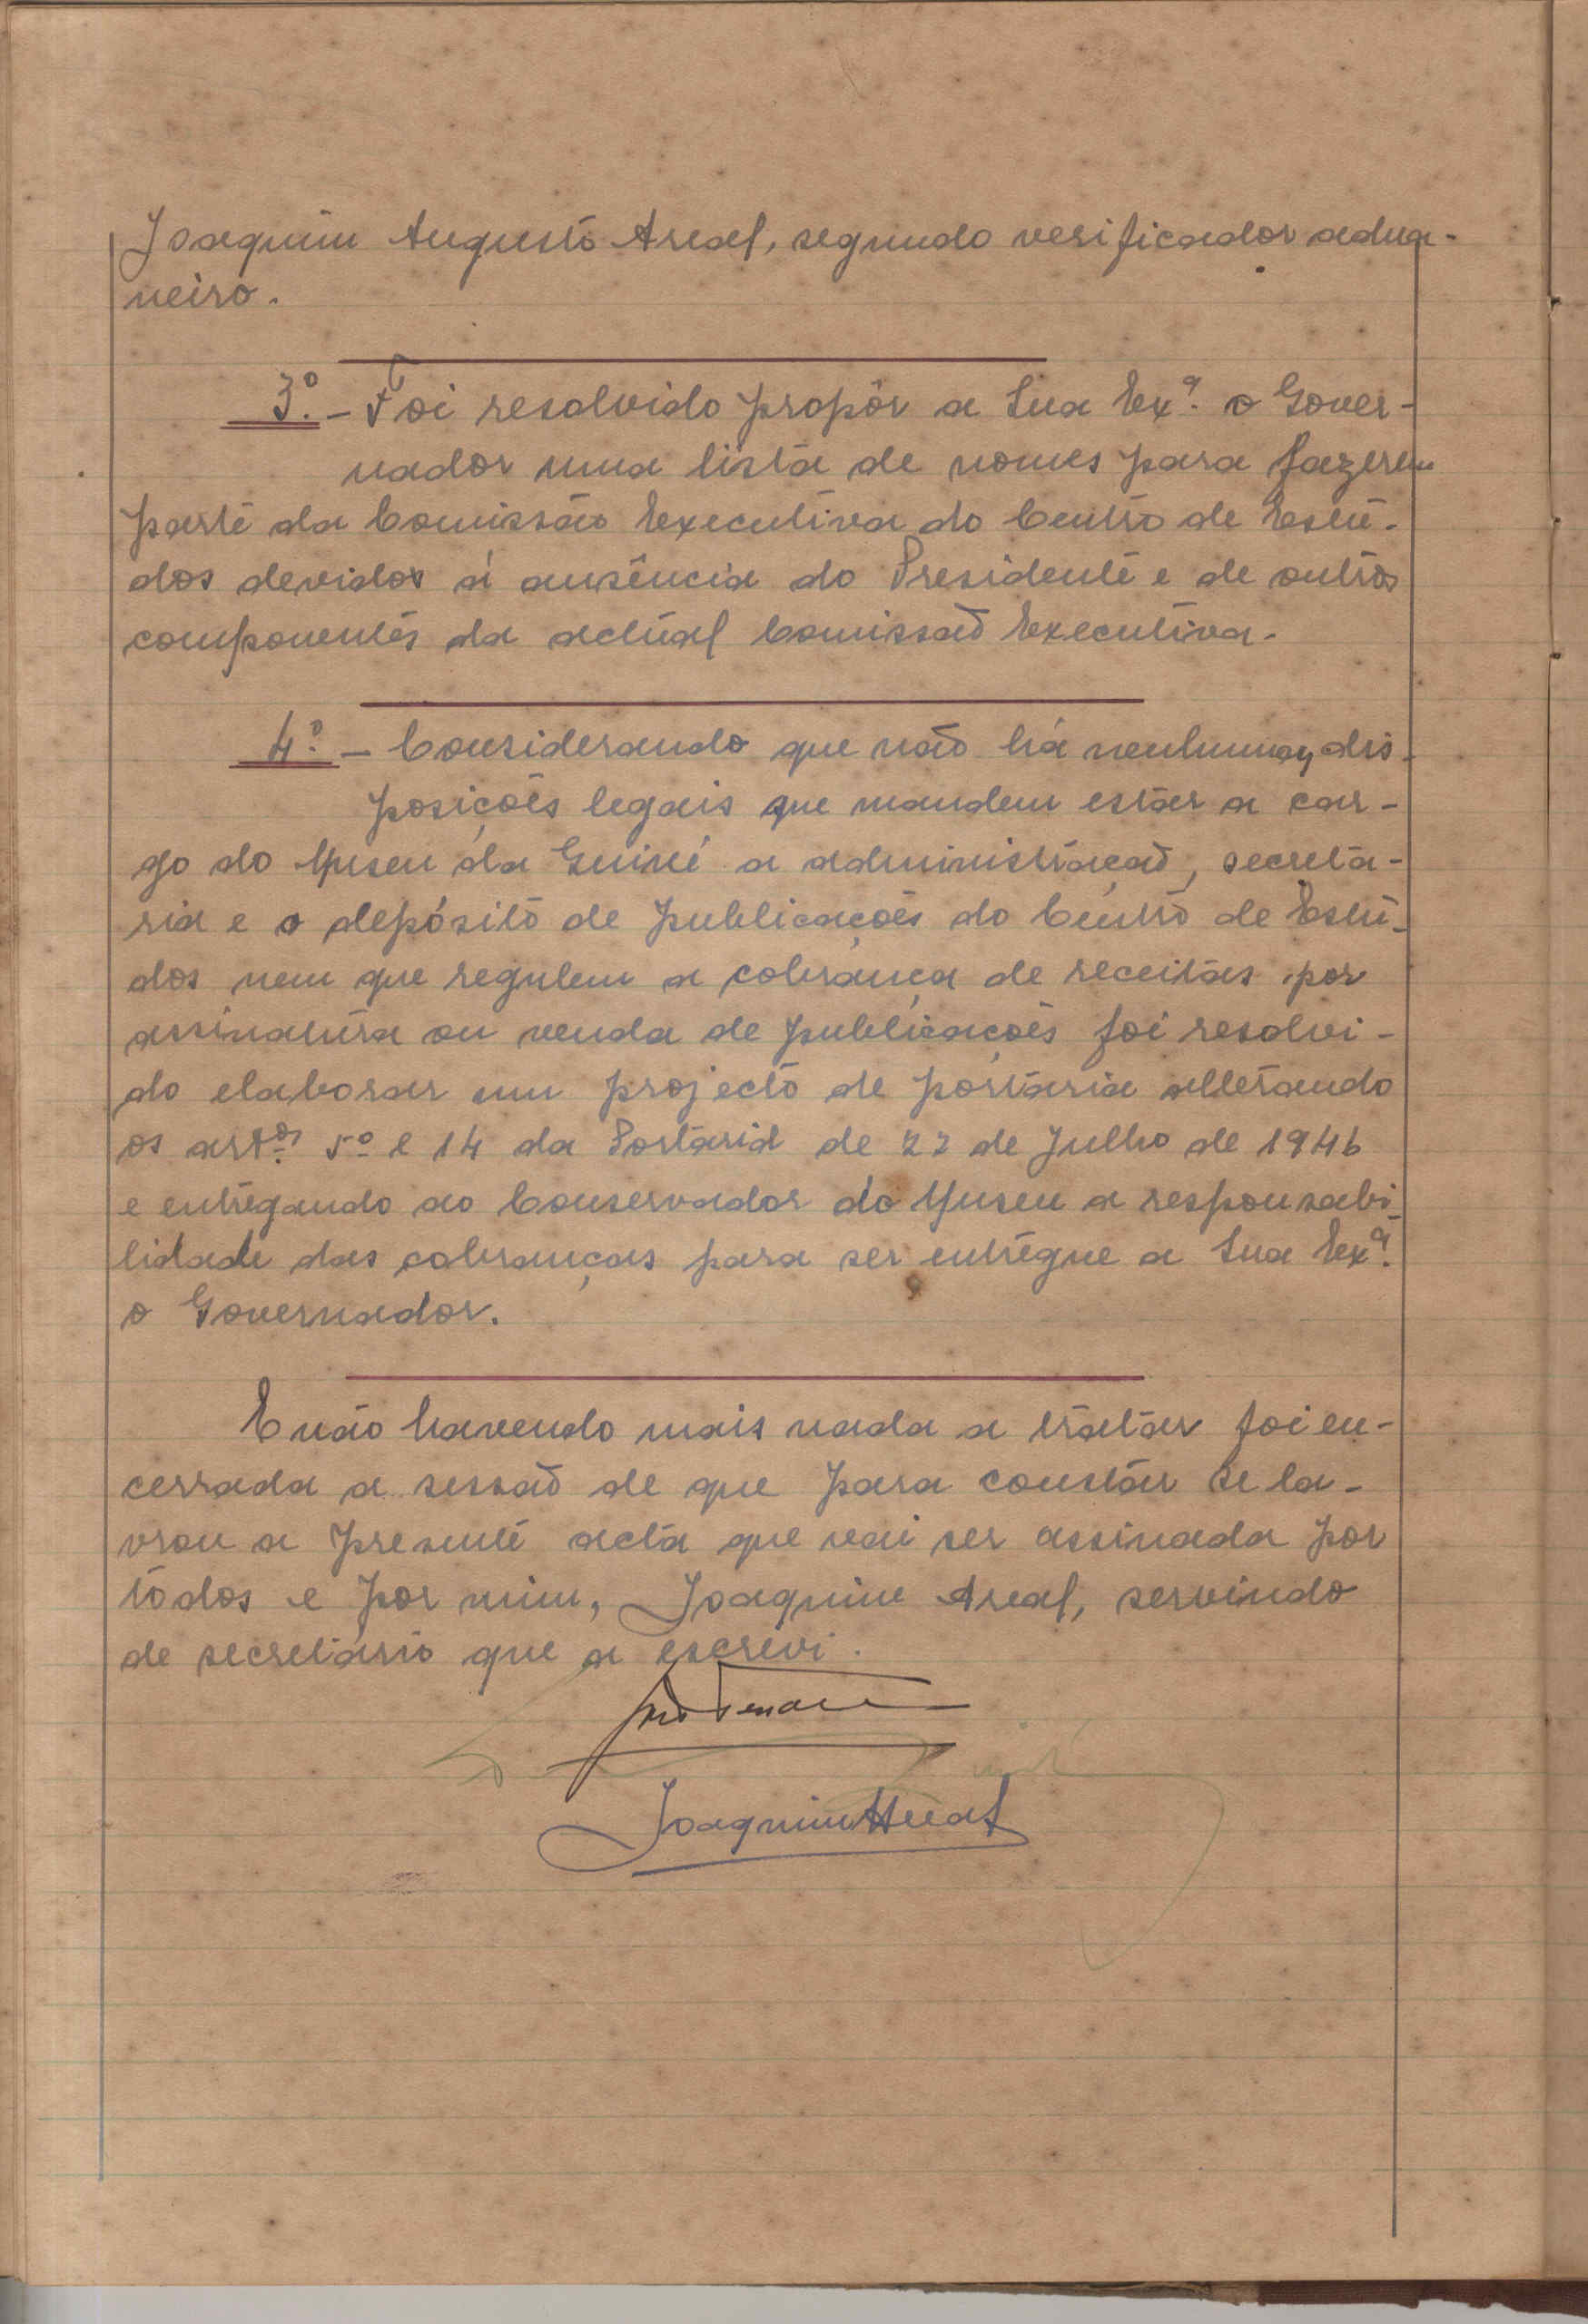 Joaquim Augusto Areal, segundo verificador adua-
neiro.
3.º - Foi resolvido propôr a Sua Exª. o Gover-
nador uma lista de nomes para fazerem
parte da Comissão Executiva do Centro de Estu-
dos devidos á ausência do Presidente e de outros
componentes da actual Comissão Executiva.
4.º - Considerando que não há nenhumas dis-
posições legais que mandem estar a car-
go do Museu da Guiné a administração, secreta-
ria e o depósito de publicações do Centro de Estu-
dos nem que regulem a cobrança de receitas por
assinatura ou venda de publicações foi resolvi-
do elaborar um projecto de portaria alterando
os artos. 5º e 14 da Portaria de 22 de Julho de 1946
e entregando ao Conservador do Museu a responsabi-
lidade das cobranças para ser entregue a Sua Exª.
o Governador.
E não havendo mais nada a tratar foi en-
cerrada a sessão de que para constar se la-
vrou a presente acta que vai ser assinada por
todos e por mim, Joaquim Areal, servindo
de secretário que a escrevi.
Joaquim Areal